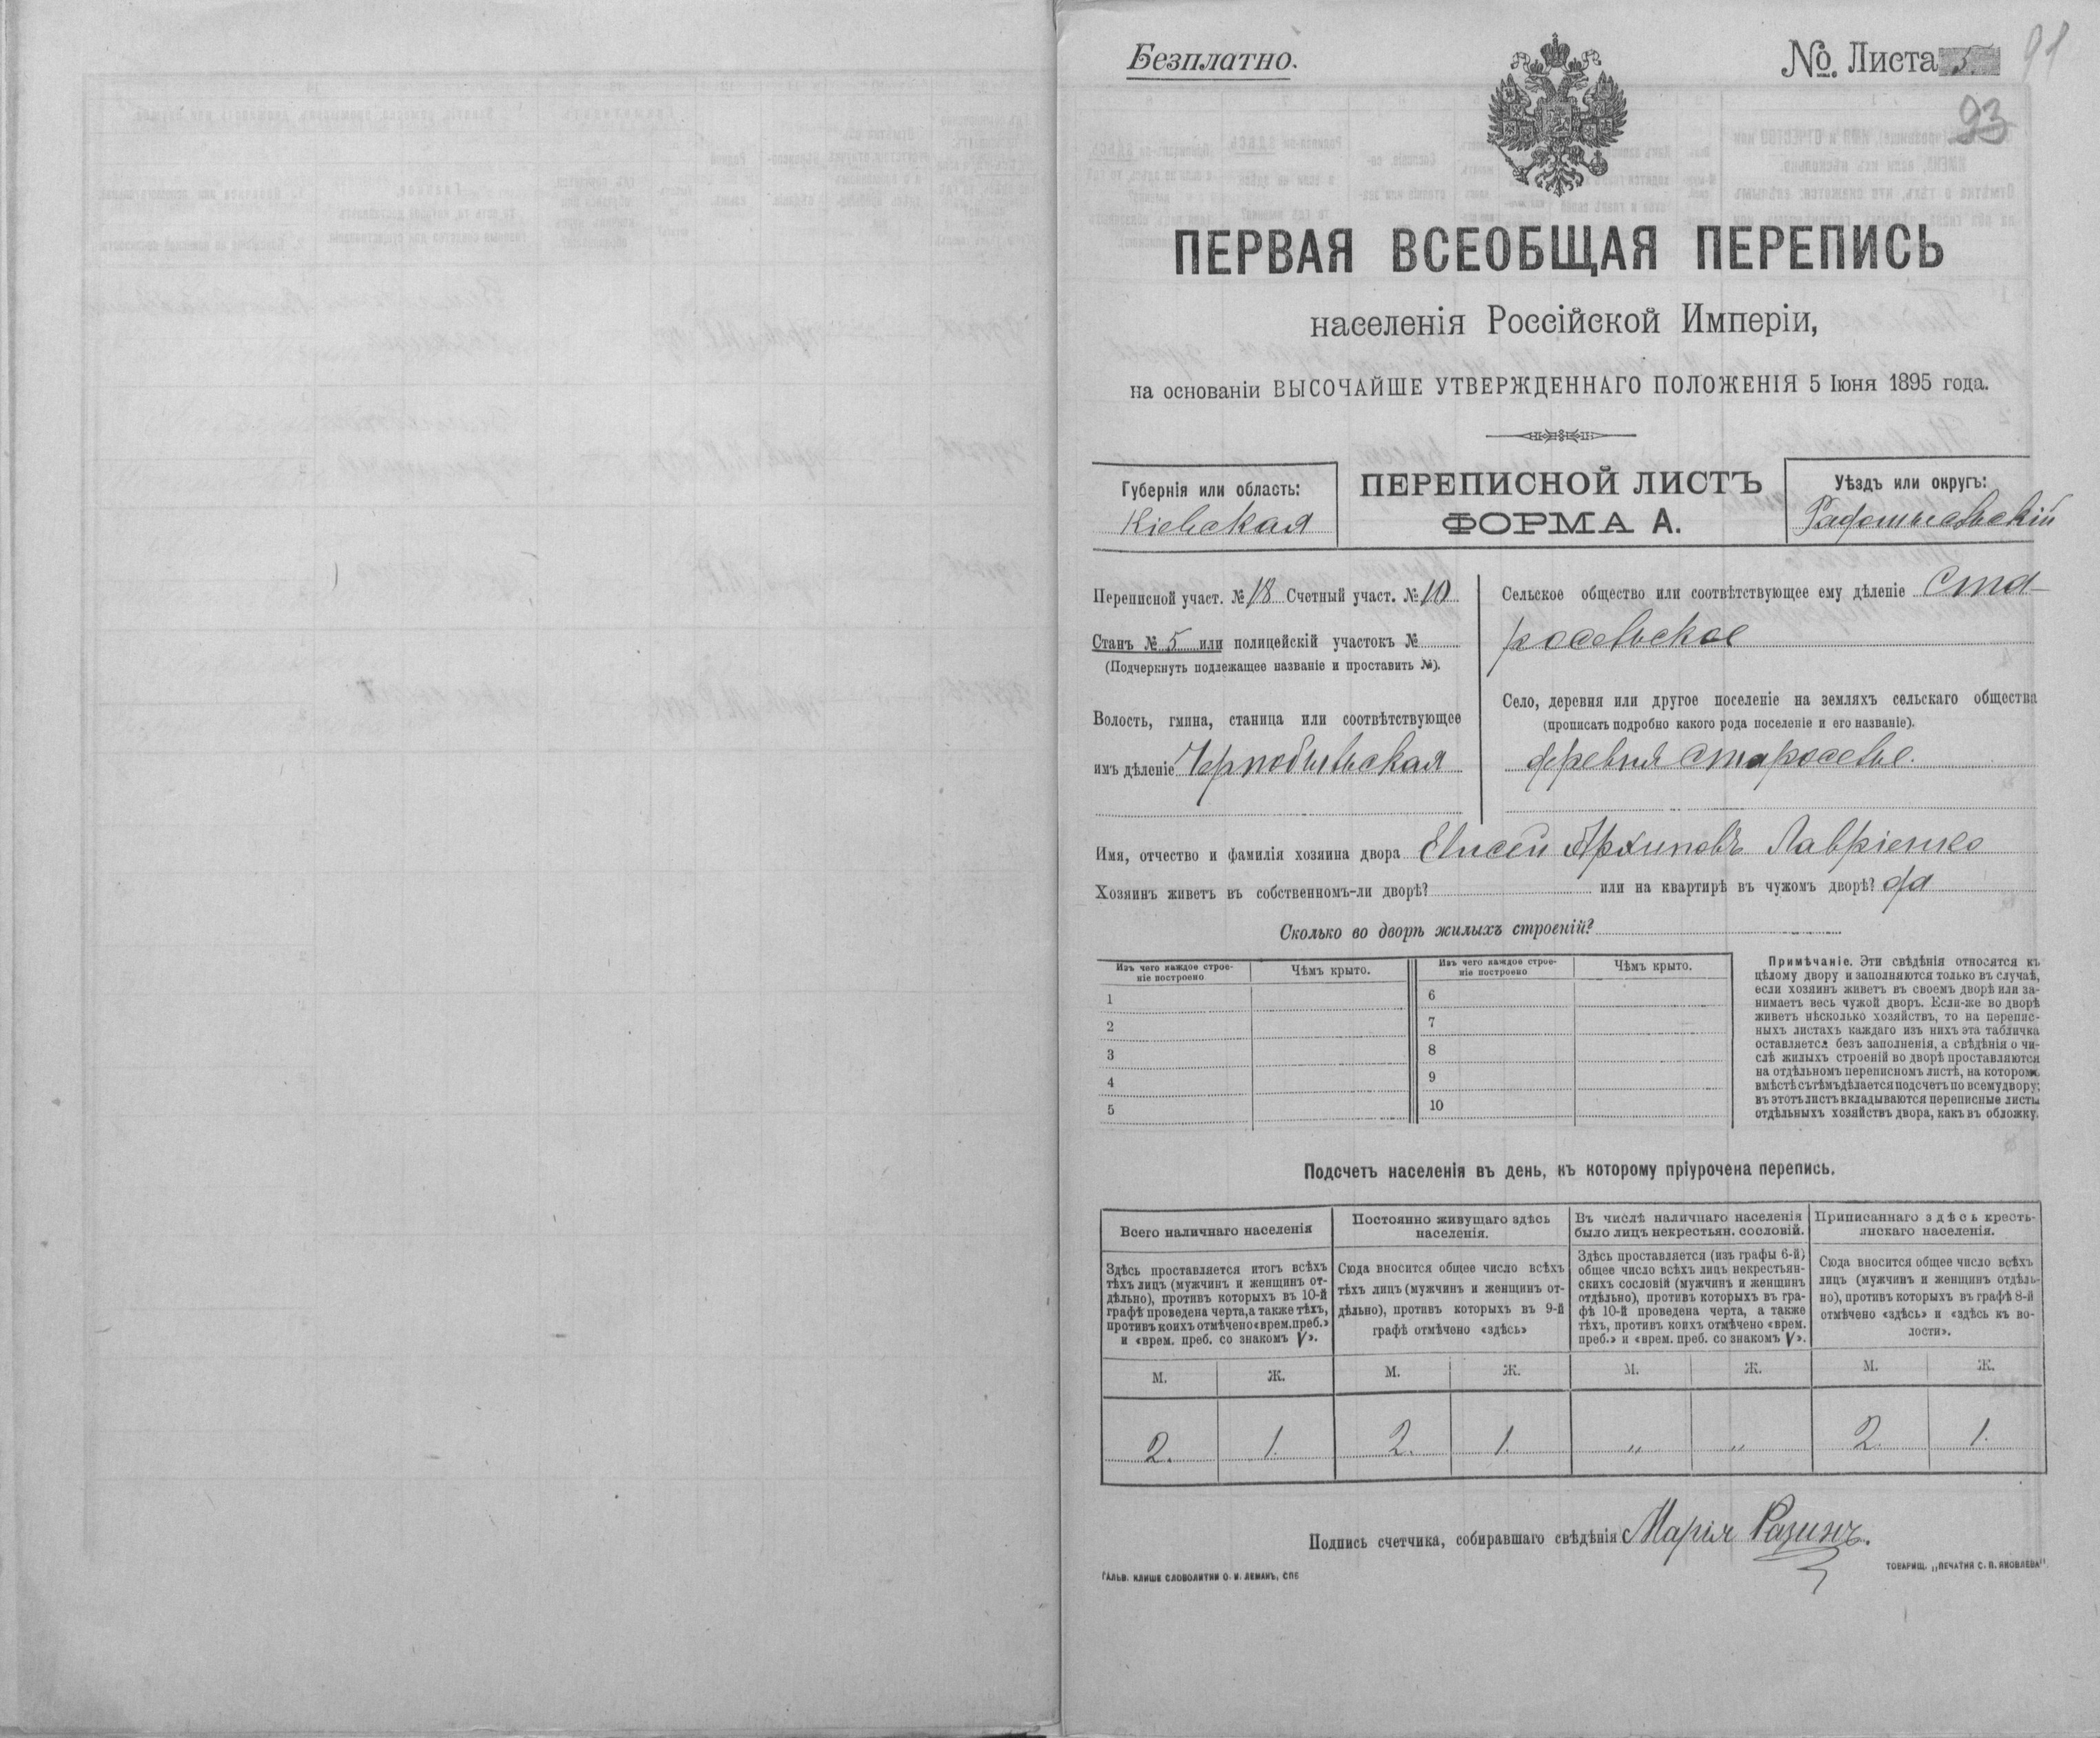 Безплатно.
№ Листа 5.
91
93
ПЕРВАЯ ВСЕОБЩАЯ ПЕРЕПИСЬ
населенія Россійской Имперіи,
на основаніи ВЫСОЧАЙШЕ УТВЕРЖДЕННАГО ПОЛОЖЕНІЯ 5 Іюня 1895 года.
Губернія или область:
Кіевская
ПЕРЕПИСНОЙ ЛИСТЪ
ФОРМА А.
Уѣздъ или округъ:
Радомысльскій
Переписной участ. № 18 Счетный участ. № 10
Станъ № 5 или полицейскій участокъ №
(Подчеркнуть подлежащее названіе и проставить №).
Волость, гмина, станица или соотвѣтствующее
имъ дѣленіе Чернобыльская
Сельское общество или соотвѣтствующее ему дѣленіе Ста-
росельское
Село, деревня или другое поселеніе на земляхъ сельскаго общества
(прописать подробно какого рода поселеніе и его названіе).
деревня Староселье.
Имя, отчество и фамилія хозяина двора Елисей Архиповъ Лавріенко
Хозяинъ живетъ въ собственномъ-ли дворѣ? или на квартирѣ въ чужомъ дворѣ? да
Сколько во дворѣ жилыхъ строеній?
Изъ чего каждое строе-
ніе построено
Чѣмъ крыто.
Изъ чего каждое строе-
ніе построено
Чѣмъ крыто.
1
2
3
4
5
6
7
8
9
10
Примѣчаніе. Эти свѣдѣнія относятся къ
цѣлому двору и заполняются только въ случаѣ,
если хозяинъ живетъ въ своемъ дворѣ или за-
нимаетъ весь чужой дворъ. Если-же во дворѣ
живетъ нѣсколько хозяйствъ, то на перепис-
ныхъ листахъ каждаго изъ нихъ эта табличка
оставляется безъ заполненія, а свѣдѣнія о чи-
слѣ жилыхъ строеній во дворѣ проставляются
на отдѣльномъ переписномъ листѣ, на которомъ
вмѣстѣ съ тѣмъ дѣлается подсчетъ по всему двору;
въ этотъ листъ вкладываются переписные листы
отдѣльныхъ хозяйствъ двора, какъ въ обложку.
Подсчетъ населенія въ день, къ которому пріурочена перепись.
Всего наличнаго населенія
Здѣсь проставляется итогъ всѣхъ
тѣхъ лицъ (мужчинъ и женщинъ от-
дѣльно), противъ которыхъ въ 10-й
графѣ проведена черта, а также тѣхъ,
противъ коихъ отмѣчено «врем. преб.»
и «врем. преб. со знакомъ V».
Постоянно живущаго здѣсь
населенія.
Сюда вносится общее число всѣхъ
тѣхъ лицъ (мужчинъ и женщинъ от-
дѣльно), противъ которыхъ въ 9-й
графѣ отмѣчено «здѣсь»
Въ числѣ наличнаго населенія
было лицъ некрестьян. сословій.
Здѣсь проставляется (изъ графы 6-й)
общее число всѣхъ лицъ некрестьян-
скихъ сословій (мужчинъ и женщинъ
отдѣльно), противъ которыхъ въ гра-
фѣ 10-й проведена черта, а также
тѣхъ, противъ коихъ отмѣчено «врем.
преб.» и «врем. преб. со знакомъ V».
Приписаннаго здѣсь кресть-
янскаго населенія.
Сюда вносится общее число всѣхъ
лицъ (мужчинъ и женщинъ отдѣль-
но), противъ которыхъ въ графѣ 8-й
отмѣчено «здѣсь» и «здѣсь къ во-
лости».
М. Ж. М. Ж. М. Ж. М. Ж.
2. 1. 2. 1. „ „ 2. 1.
Подпись счетчика, собиравшаго свѣдѣнія Марія Разинъ.
ГАЛЬВ. КЛИШЕ СЛОВОЛИТНИ О. И. ЛЕМАНЪ, СПБ
ТОВАРИЩ. „ПЕЧАТНЯ С. П. ЯКОВЛЕВА"